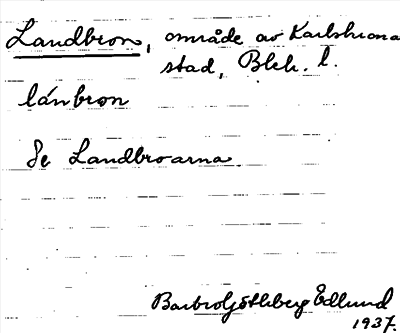 Landbron, område av Karlskrona
stad, Blek. l.
lánbron
Se Landbroarna.
Barbro Götheberg Edlund
1937.